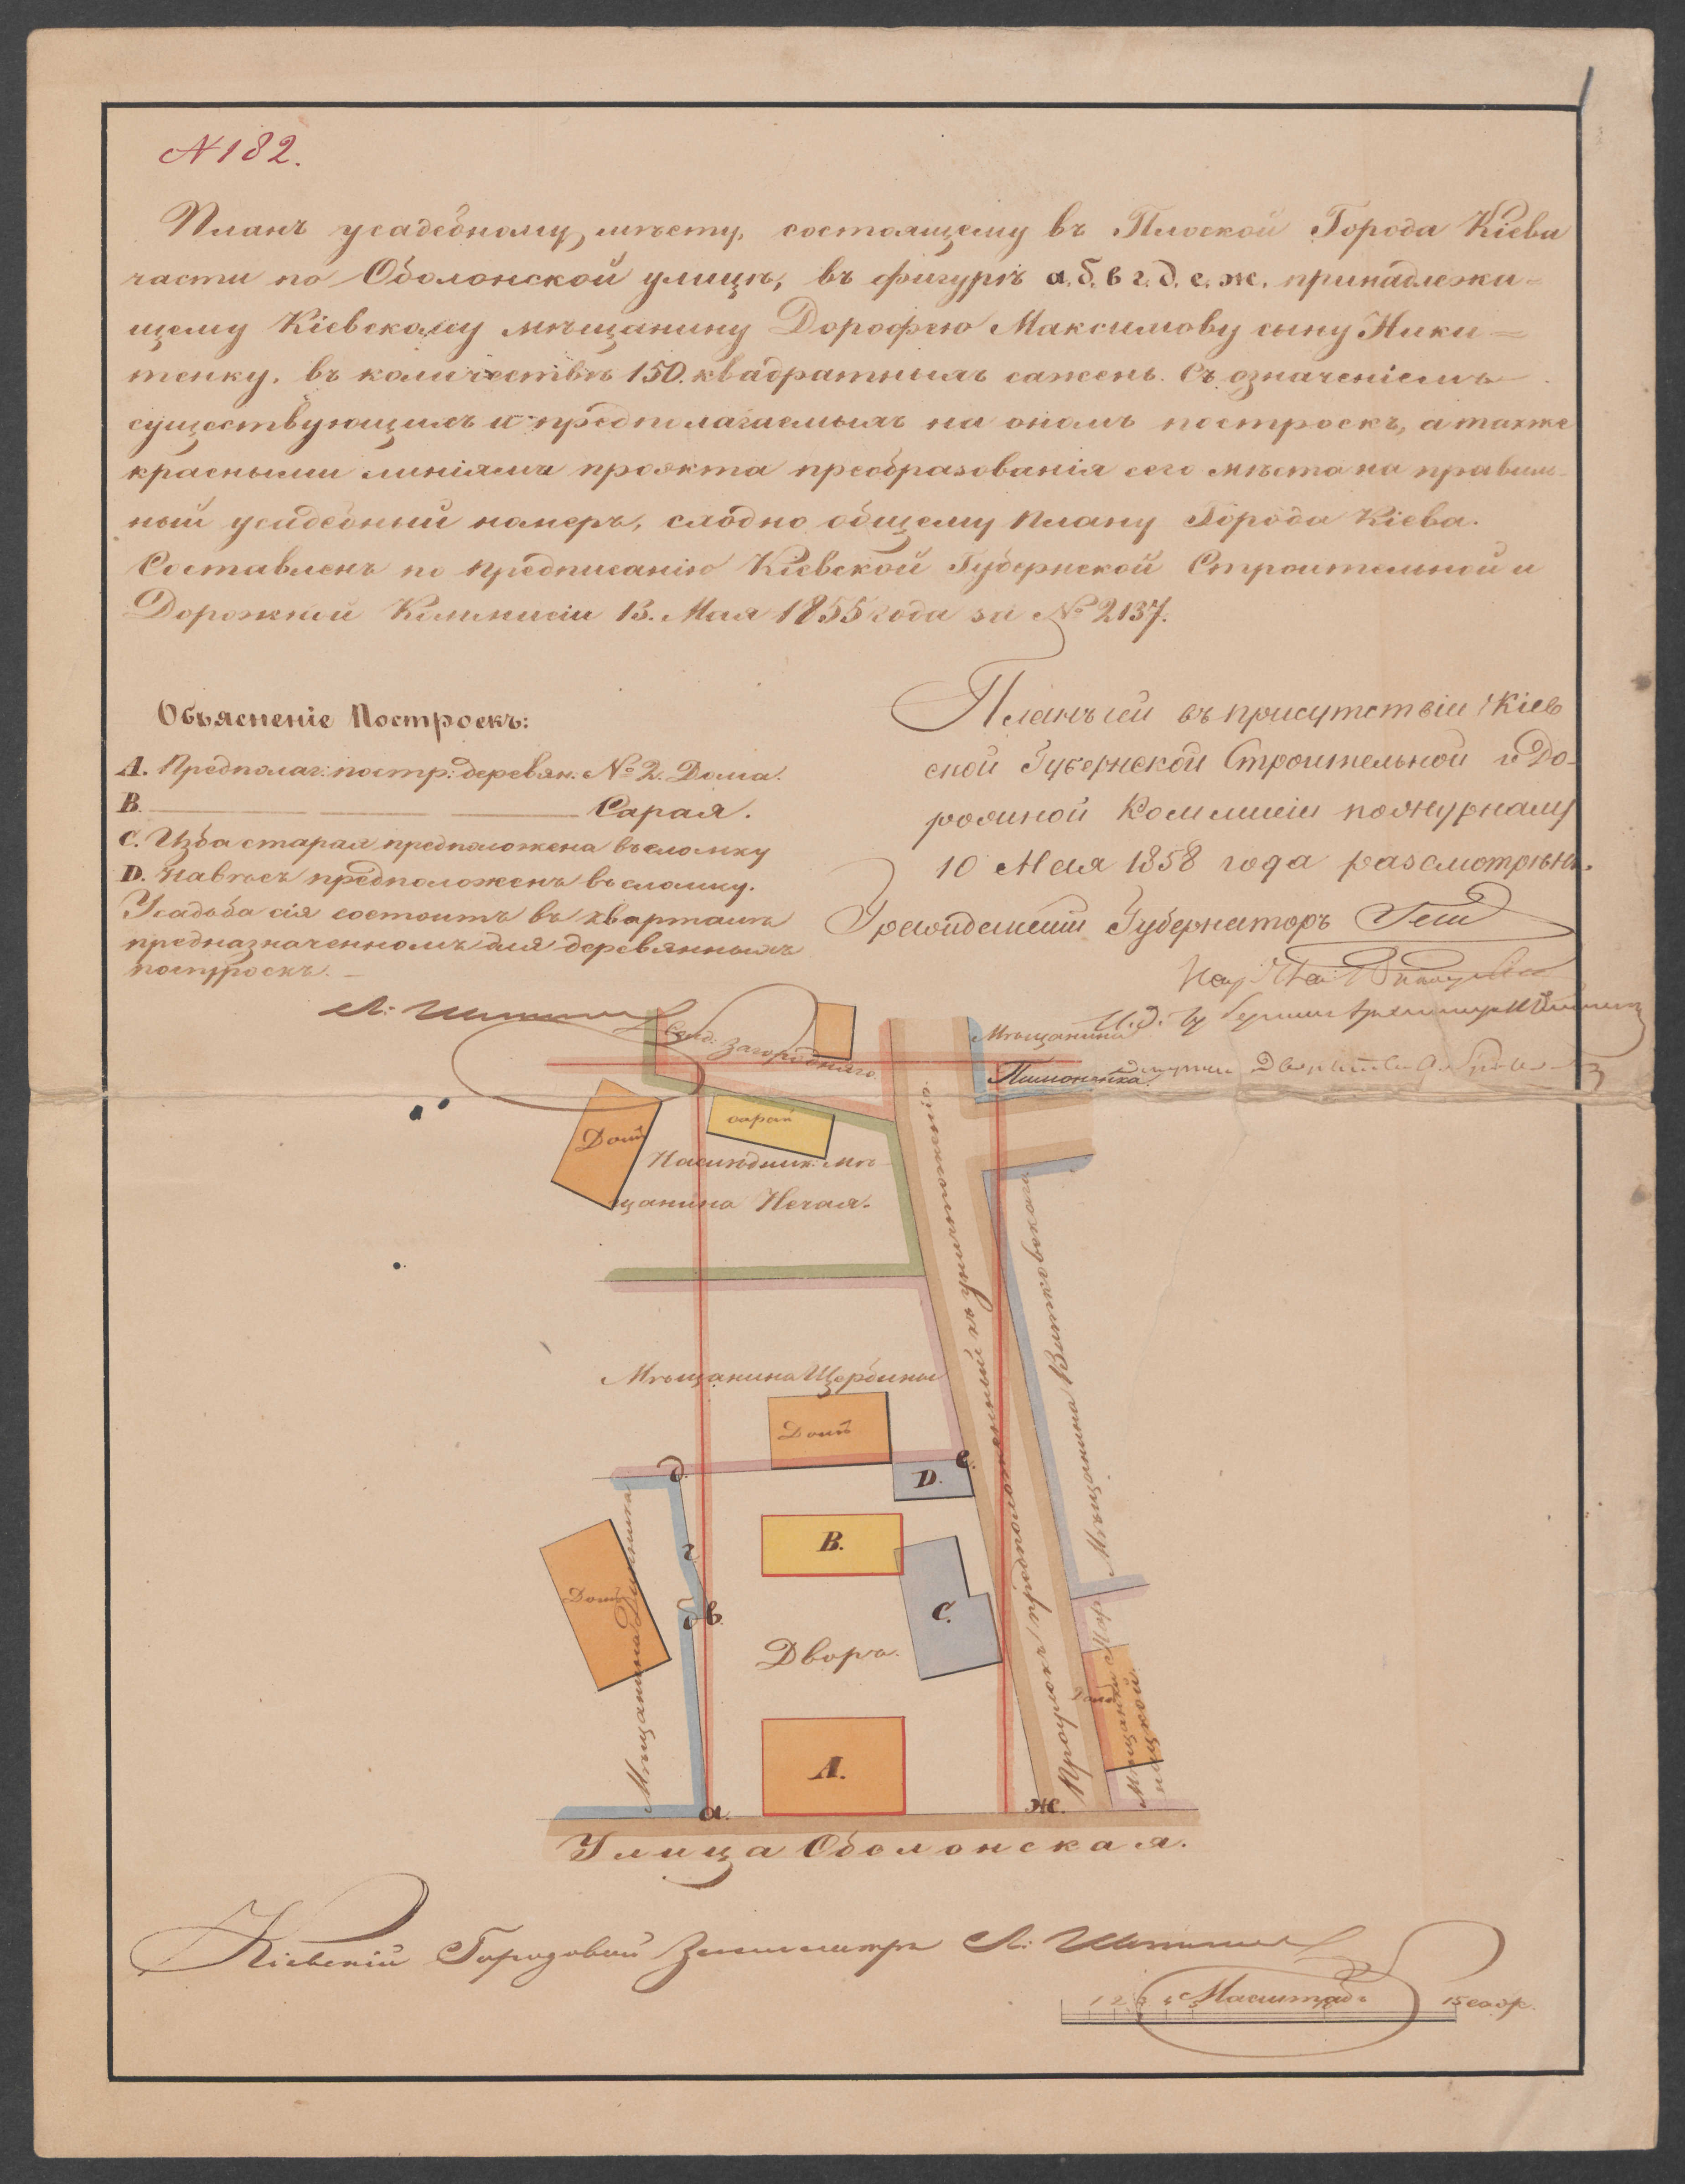 N 182.
Планъ усадебному мѣсту, состоящему въ Плоской Города Кіева
части по Оболонской улицѣ, въ фигурѣ а. б. в г. д. е. ж. принадлежа-
щему Кіевскому мѣщанину Дорофѣю Максимову сыну Ники=
тенку, въ количествѣ 150. квадратныхъ сажень. Съ означеніемъ
существующихъ и предполагаемыхъ на ономъ построекъ, а также
красными линіями проэкта преобразованія сего мѣста на правиль-
ный усадебный номеръ, сходно общему плану Города Кіева.
Составленъ по предписанію Кіевской Губернской Строительной и
Дорожной Коммисіи 13. Мая 1855 года за № 2137.
Объясненіе Построекъ:
А. Предполаг: постр: деревян: № 2. Дома.
В. Сарая.
С. Изба старая предположена въ сломку
D. Навѣсъ предположенъ въ сломку.
Усадьба сія состоитъ въ кварталѣ
предназначенномъ для деревянныхъ
построекъ.
Планъ сей въ присутствіи Кіев
ской Губернской Строительной и До-
рожной Коммисіи по журналу
10 Мая 1858 года разсмотрѣнъ.
Гражданскій Губернаторъ Гессе
Загороднаго.
Мѣщанина
Пимоненка.
Домъ
сарай
Наслѣдник: мѣ-
щанина Нечая.
Мѣщанина Щербины
Домъ
д.
е.
D.
В.
г
б
в.
С.
Домъ
Дворъ.
А.
а.
ж.
Мѣщанина
Проулокъ предположенный къ уничтоженію.
Мѣщанина Витковскаго
Домъ
Мѣщанки
Улица Оболонская.
Кіевскій Городовой Землемѣръ
Масштабъ
1 2 3 4 5
15 саж.